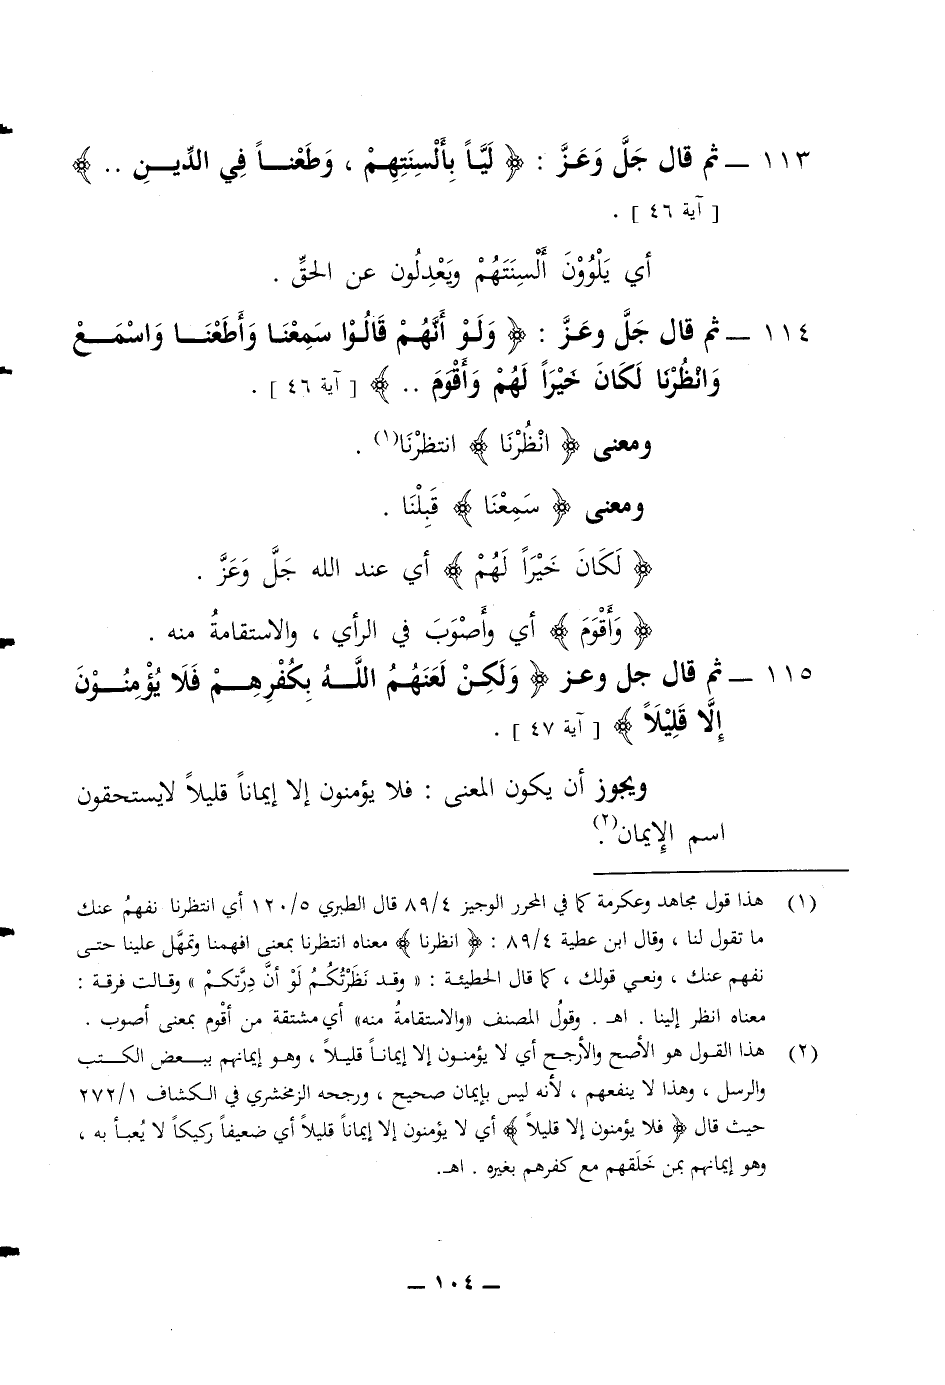 ١١٣ ــ ثم قال جَلَّ وَعَزَّ : ﴿ لَيَّاً بِأَلْسِنَتِهِمْ ، وَطَعْنـــاً فِي الدِّيـــنِ .. ﴾
[ آية ٤٦ ] .
أي يَلْوُوْنَ أَلْسِنَتَهُمْ ويَعْدِلُون عن الحَقِّ .
١١٤ ــ ثم قال جَلَّ وعَزَّ : ﴿ وَلَوْ أَنَّهُمْ قَالُوْا سَمِعْنَا وَأَطَعْنَــا وَاسْمَــعْ
وَانْظُرْنَا لَكَانَ خَيْرَاً لَهُمْ وَأَقْوَمَ .. ﴾ [ آية ٤٦ ] .
ومعنى ﴿ انْظُرْنَا ﴾ انتظرْنَا(١) .
ومعنى ﴿ سَمِعْنَا ﴾ قَبِلْنَا .
﴿ لَكَانَ خَيْرَاً لَهُمْ ﴾ أي عند الله جَلَّ وَعَزَّ .
﴿ وَأَقْوَمَ ﴾ أي وأَصْوَبَ في الرأي ، والاستقامةُ منه .
١١٥ ــ ثم قال جل وعـز ﴿ وَلَكِـنْ لَعَنَهُـمُ اللَّــهُ بِكُفْرِهِــمْ فَلَا يُؤْمِنُــوْنَ
إِلَّا قَلِيْلَاً ﴾ [ آية ٤٧ ] .
ويجوز أن يكون المعنى : فلا يؤمنون إلا إيماناً قليلاً لايستحقون
اسم الإِيمان(٢).
(١) هذا قول مجاهد وعكرمة كما في المحرر الوجيز ٨٩/٤ قال الطبري ١٢٠/٥ أي انتظرنا نفهمُ عنك
ما تقول لنا ، وقال ابن عطية ٨٩/٤ : ﴿ انظرنا ﴾ معناه انتظرنا بمعنى افهمنا وتمهَّل علينا حتـى
نفهم عنك ، ونعـي قولك ، كما قال الحطيئـة : « وقـد نَظَرْتُكُـمُ لَوْ أنَّ دِرَّتكـمْ » وقـالت فرقة :
معناه انظر إلينا . اهـ . وقولُ المصنف «والاستقامةُ منه» أي مشتقة من أقْوم بمعنى أصوب .
(٢) هذا القـول هـو الأصـح والأرجـح أي لا يؤمنـون إلا إيمانـاً قليـلاً ، وهـو إيمانهم ببــعض الكــتب
والرسل ، وهذا لا ينفعهم ، لأنه ليس بإيمان صحيح ، ورجحه الزمخشري في الـكشاف ٢٧٢/١
حيث قال ﴿ فلا يؤمنون إلا قليلاً ﴾ أي لا يؤمنون إلا إيماناً قليلاً أي ضعيفاً ركيكاً لا يُعبـأ به ،
وهو إيمانهم بمن خَلَقهم مع كفرهم بغيره . اهـ.
ــ ١٠٤ ــ